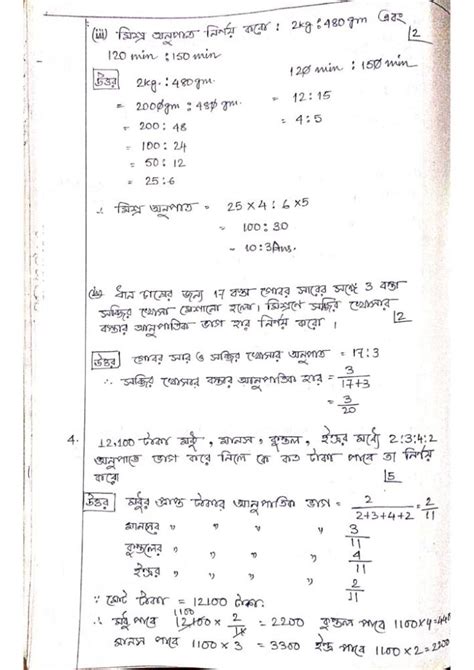 (iii) মিশ্র অনুপাত নির্ণয় করো : 2kg : 480 gm এবং
120 min : 150 min
2
উত্তর 2kg. : 480gm.
120 min : 150 min
= 2000gm : 480 gm
= 12 : 15
= 200 : 48
= 4 : 5
= 100 : 24
= 50 : 12
= 25 : 6
∴ মিশ্র অনুপাত = 25 × 4 : 6 × 5
= 100 : 30
= 10 : 3 Ans.
(iv) ধান চাষের জন্য 17 বস্তা গোবর সারের সঙ্গে 3 বস্তা
সব্জির খোসা মেশানো হলো। মিশ্রণে সব্জির খোসার
বস্তার আনুপাতিক ভাগ হার নির্ণয় করো।
2
উত্তর গোবর সার ও সব্জির খোসার অনুপাত = 17 : 3
∴ সব্জির খোসার বস্তার আনুপাতিক হার = 3/17+3
= 3/20
4. 12,100 টাকা মধু, মানস, কুন্তল, ইন্দ্রর মধ্যে 2:3:4:2
অনুপাতে ভাগ করে দিলে কে কত টাকা পাবে তা নির্ণয়
করো
5
উত্তর মধুর প্রাপ্ত টাকার আনুপাতিক ভাগ = 2/2+3+4+2 = 2/11
মানসের " " " " 3/11
কুন্তলের " " " " 4/11
ইন্দ্রর " " " " 2/11
∵ মোট টাকা = 12100 টাকা
1100
∴ মধু পাবে 12100 × 2/11 = 2200 কুন্তল পাবে 1100 × 4 = 4400
মানস পাবে 1100 × 3 = 3300 ইন্দ্র পাবে 1100 × 2 = 2200